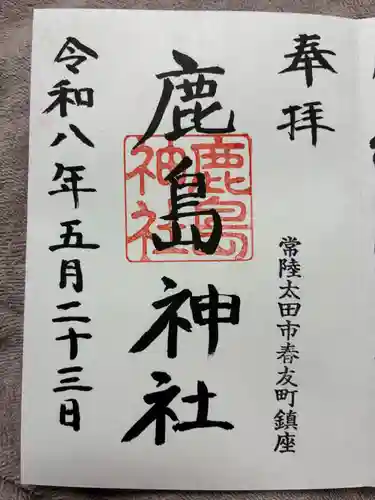 奉拝
常陸太田市春友町鎮座
鹿島神社
鹿島神社
令和八年五月二十三日